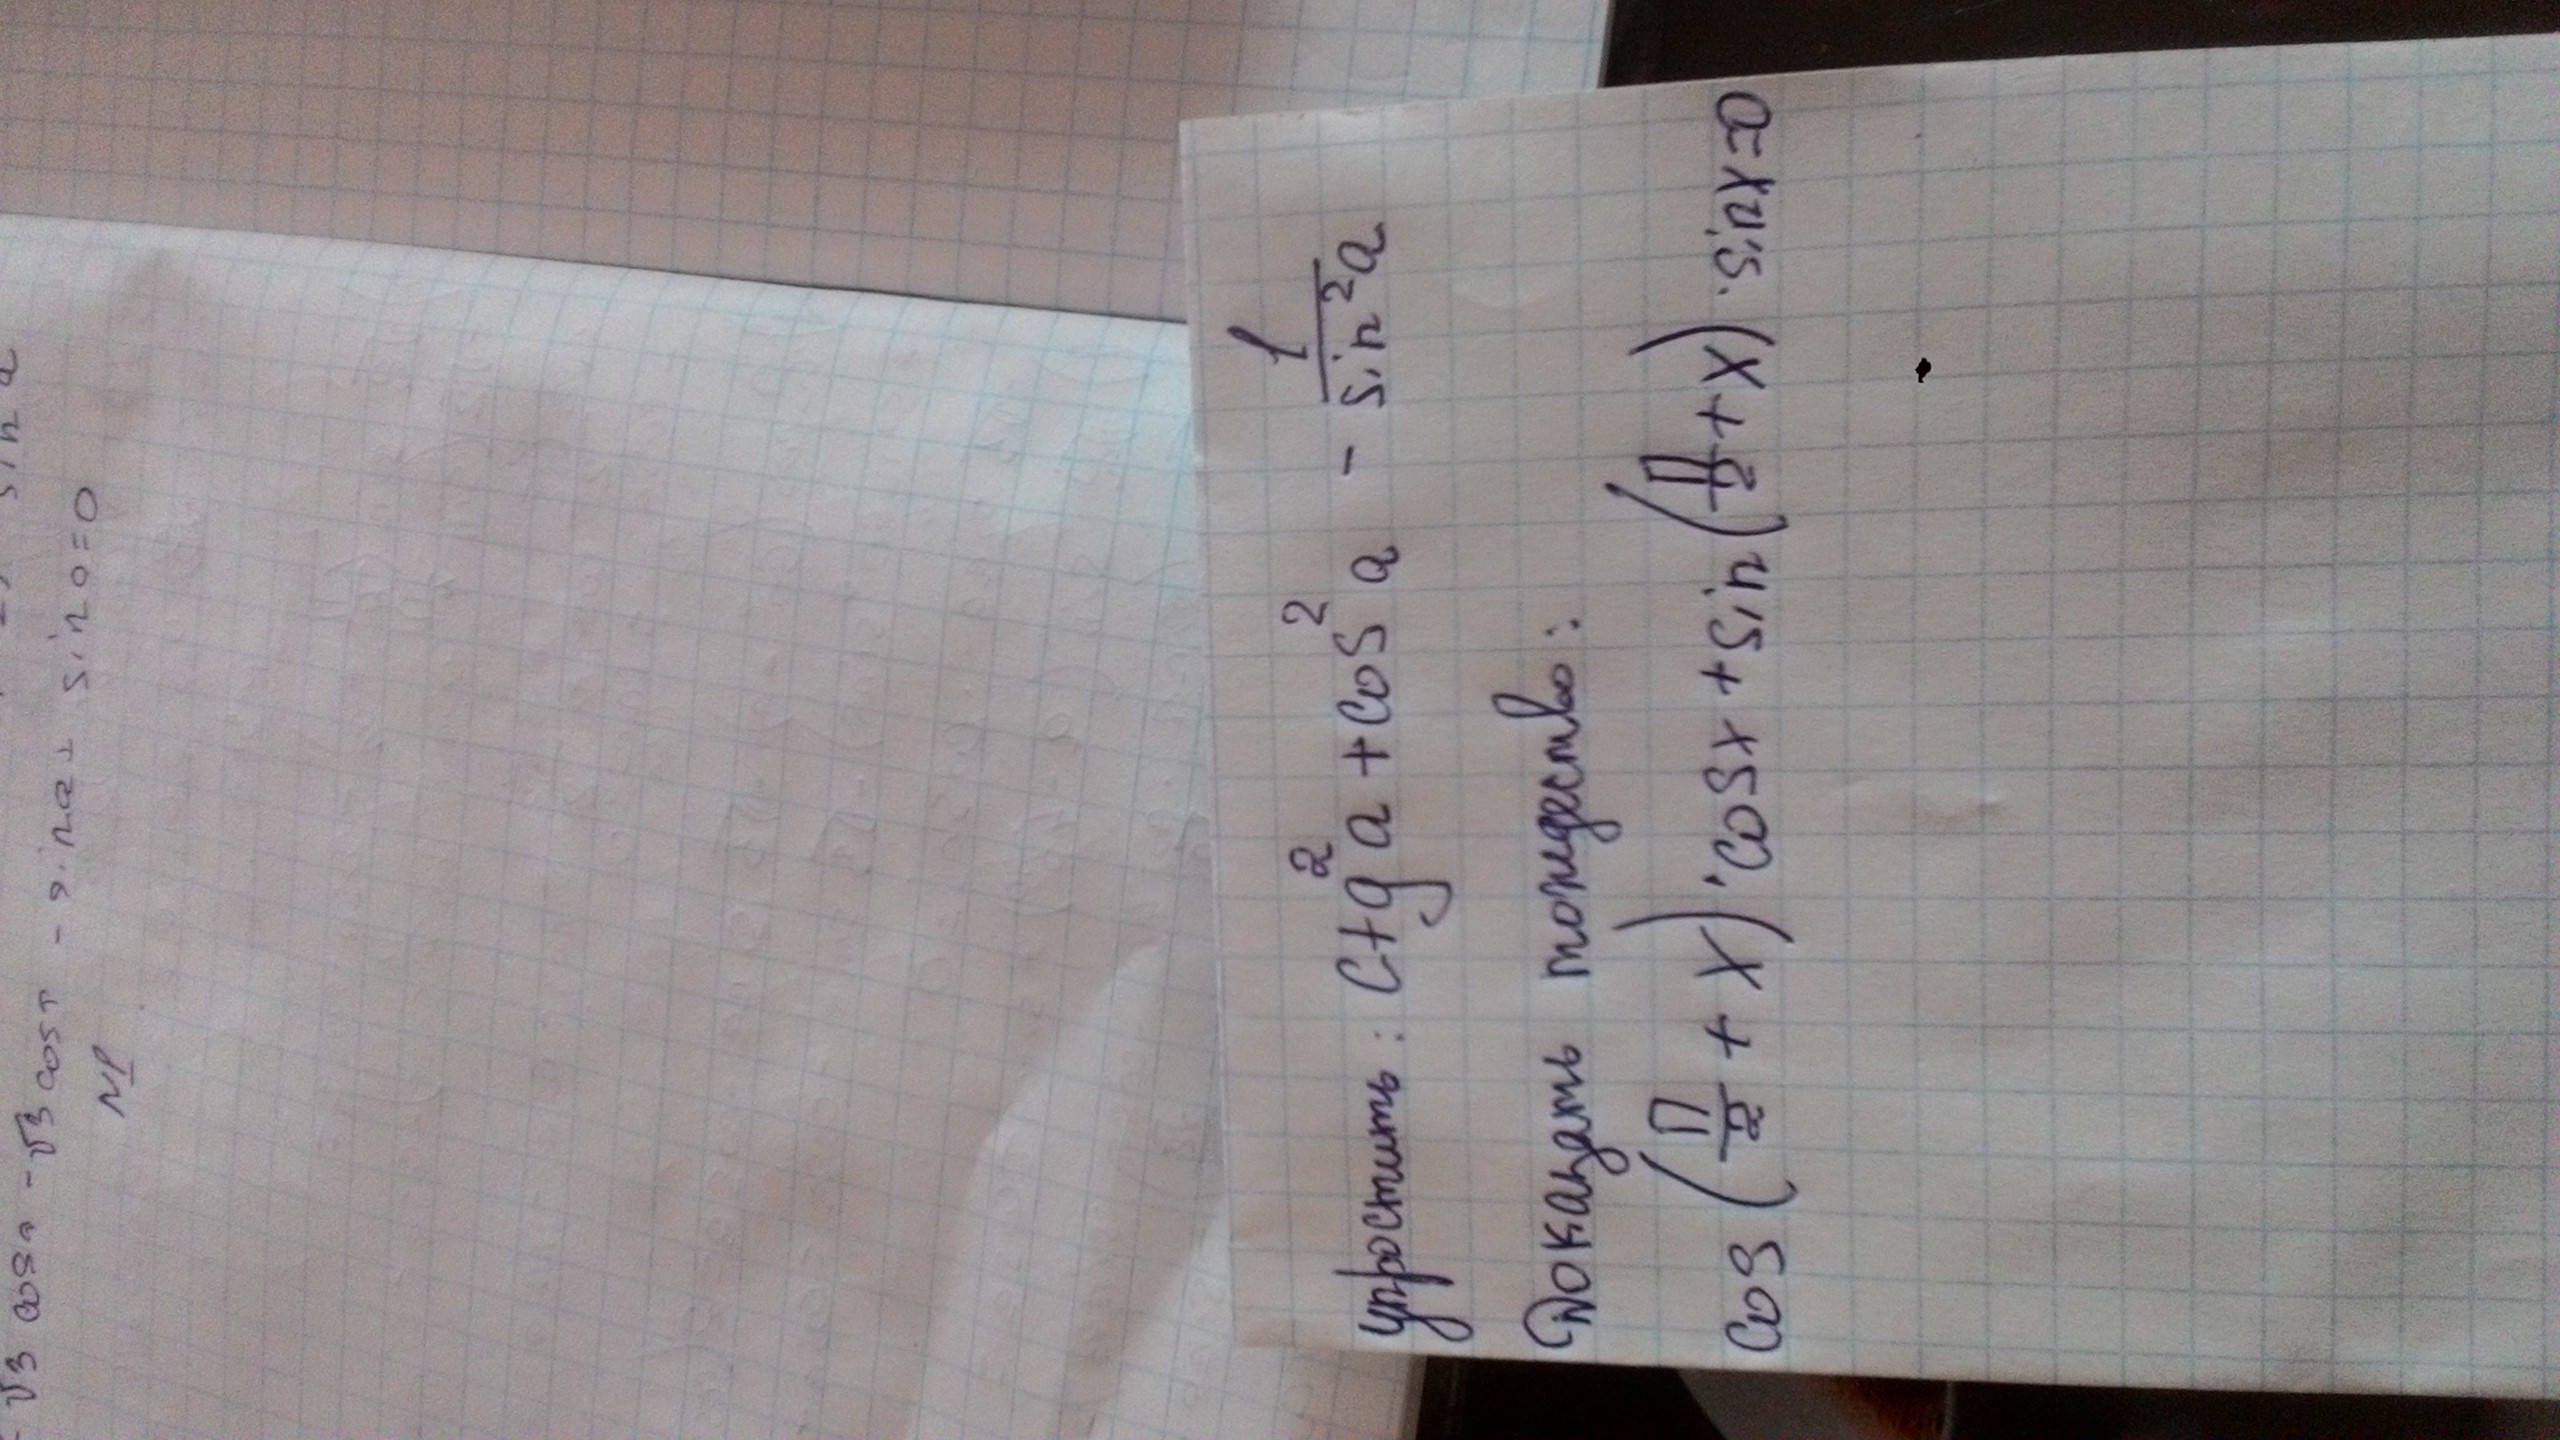 √3 cosa - √3 cos
- sina sin0=0
упростить: ctg²a + cos²a - 1/sin²a
Доказать тождество:
cos(П/2 + x)·cosx + sin(П/2 + x)·sinx=0